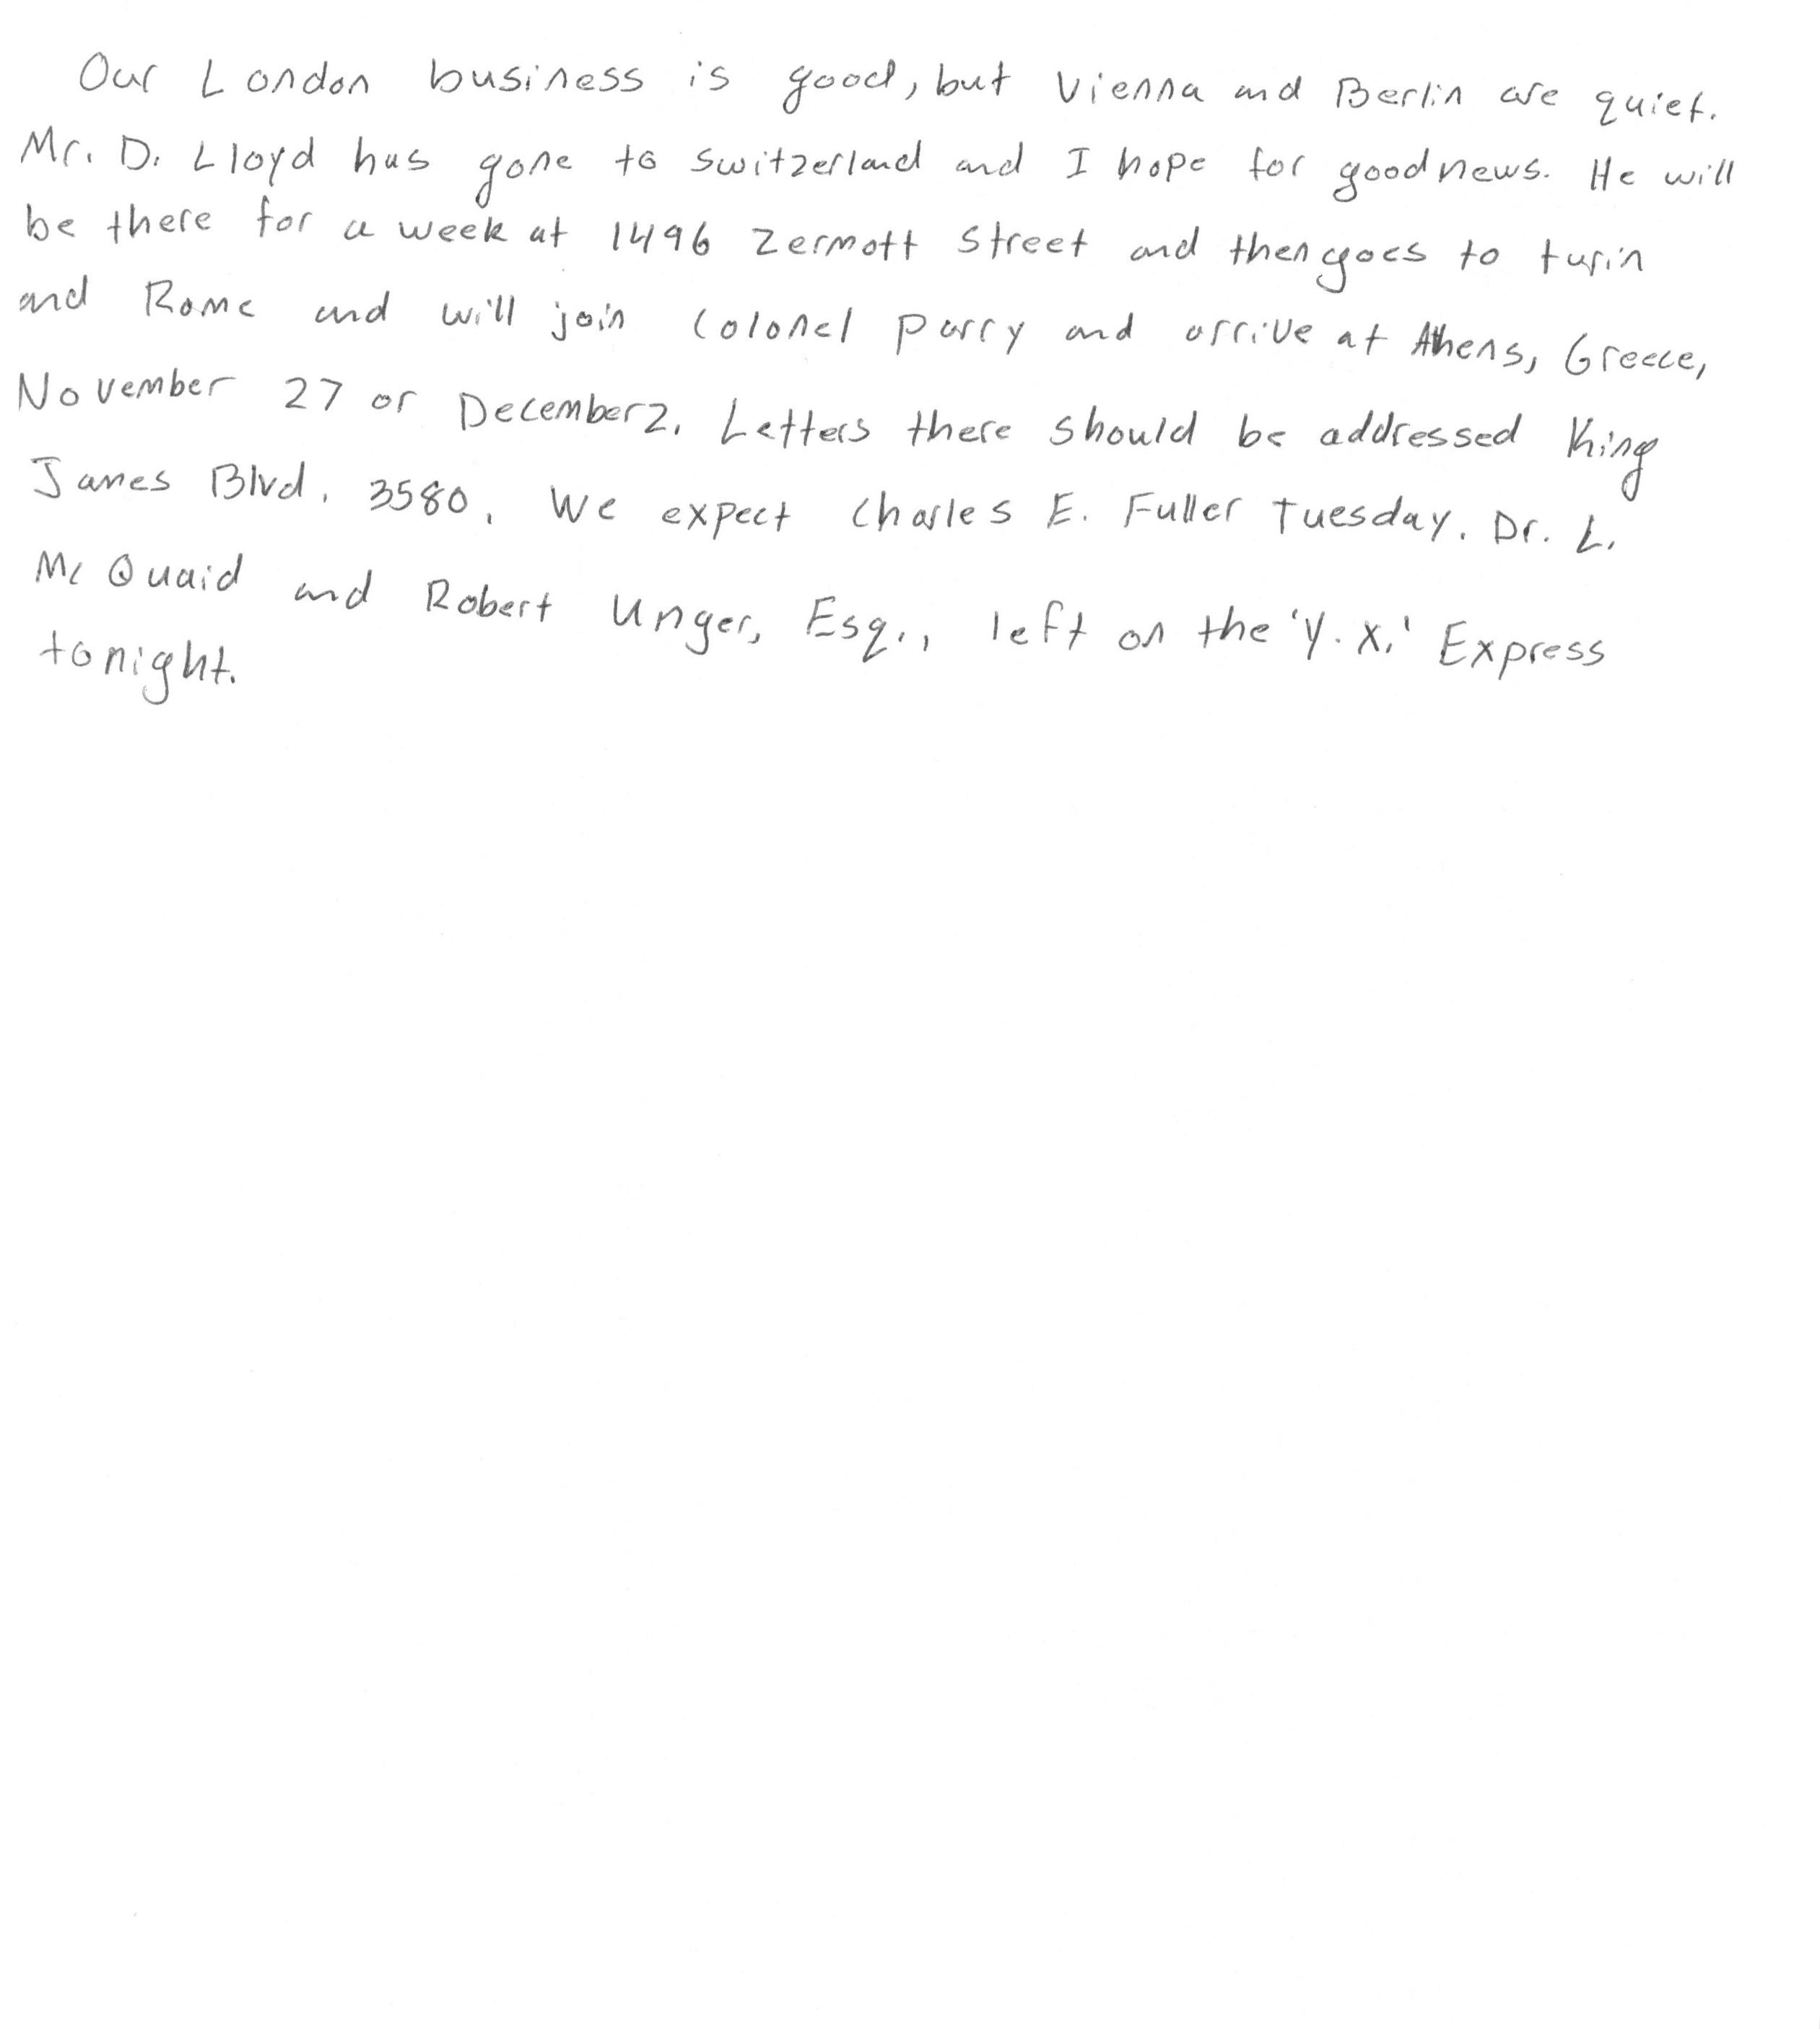 Our London business is good, but Vienna and Berlin are quiet.
Mr. D. Lloyd has gone to Switzerland and I hope for good news. He will
be there for a week at 1496 Zermott Street and then goes to turin
and Rome and will join Colonel Parry and arrive at Athens, Greece,
November 27 or December 2. Letters there should be addressed King
James Blvd. 3580. We expect Charles E. Fuller Tuesday. Dr. L.
McQuaid and Robert Unger, Esq., left on the 'Y.X.' Express
tonight.